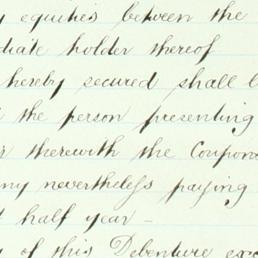 y equities between the
diate holder thereof
hereby secured shall b
the person presenting
r therewith the Coupons
ny nevertheless paying
half year —
y of this Debenture exc